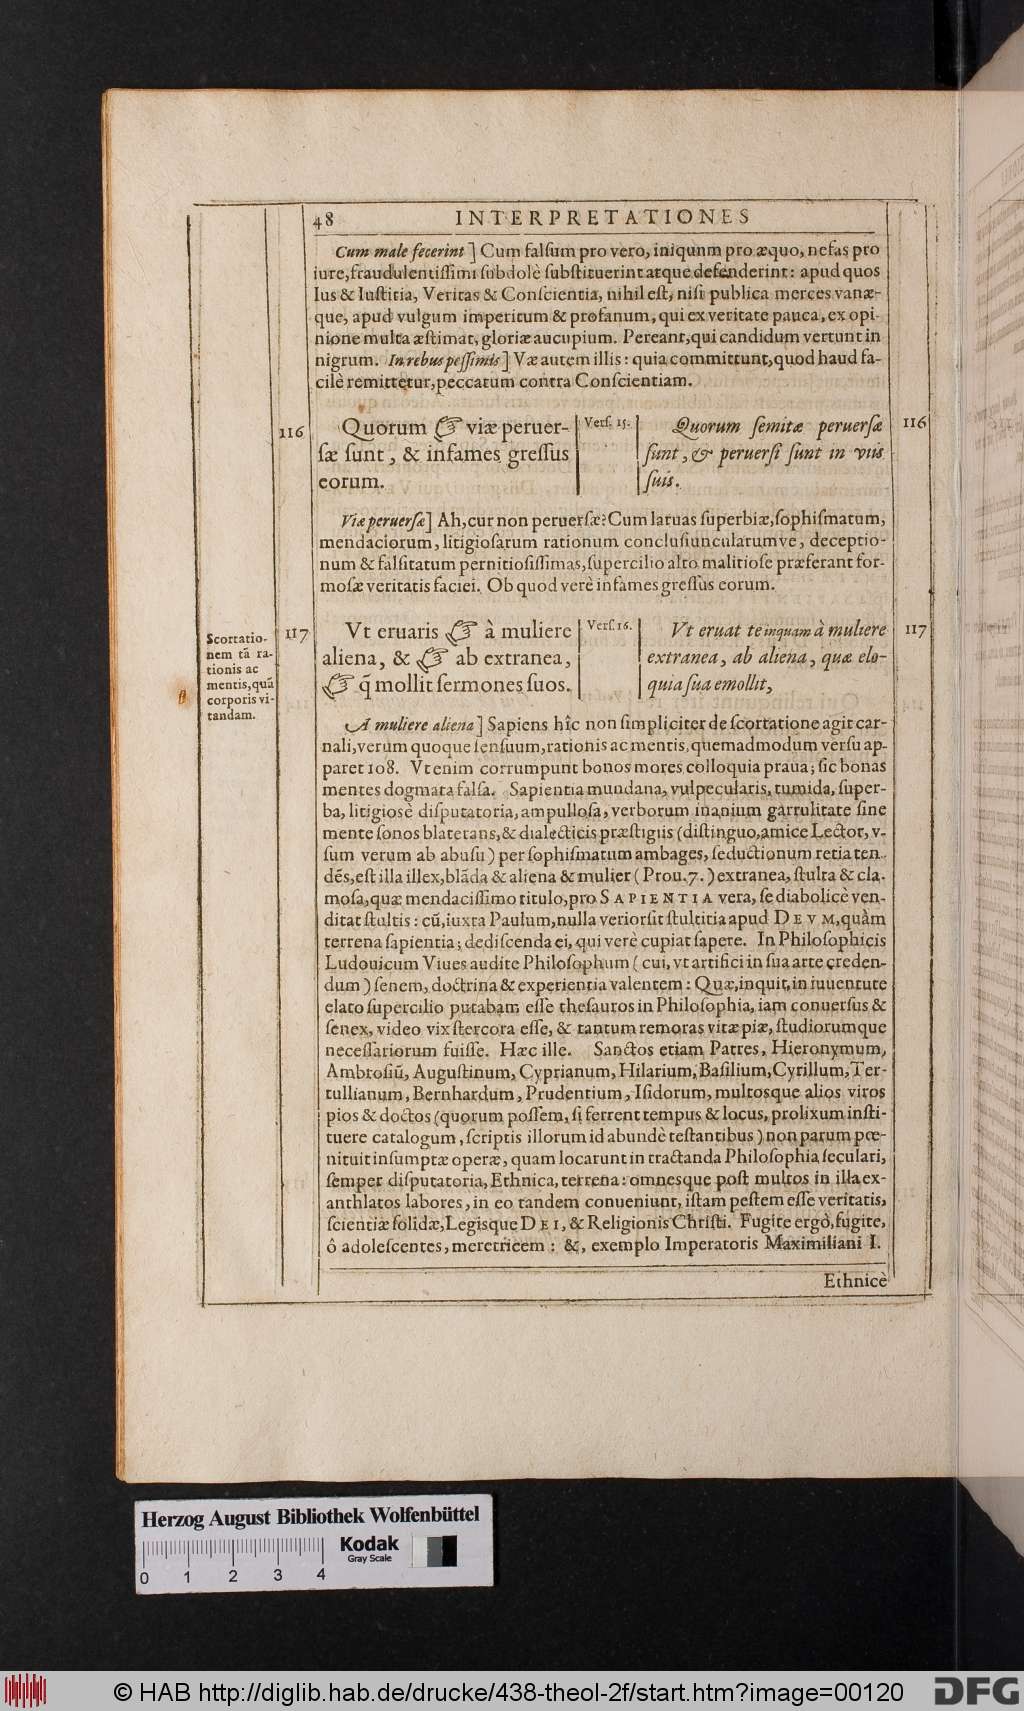 48 INTERPRETATIONES
Cum male fecerint] Cum falſum pro vero, iniquum pro æquo, nefas pro
iure, fraudulentiſſimi ſubdolè ſubſtituerint atque defenderint: apud quos
Ius & Iuſtitia, Veritas & Conſcientia, nihil eſt, niſi publica merces vanæ-
que, apud vulgum imperitum & profanum, qui ex veritate pauca, ex opi-
nione multa æſtimat, gloriæ aucupium. Pereant, qui candidum vertunt in
nigrum. In rebus peſſimis] Væ autem illis: quia committunt, quod haud fa-
cilè remittetur, peccatum contra Conſcientiam.
116 Quorum ☞ viæ peruer-
ſæ ſunt, & infames greſſus
eorum.
Verſ. 15.
Quorum ſemitæ peruerſæ 116
ſunt, & peruerſi ſunt in viis
ſuis.
Viæ peruerſæ] Ah, cur non peruerſæ? Cum laruas ſuperbiæ, ſophiſmatum,
mendaciorum, litigioſarum rationum concluſiuncularumve, deceptio-
num & falſitatum pernitioſiſſimas, ſupercilio alto malitioſe præferant for-
moſæ veritatis faciei. Ob quod verè infames greſſus eorum.
Scortatio-
nem tā ra-
tionis ac
mentis, quā
corporis vi-
tandam.
117 Vt eruaris ☞ à muliere
aliena, & ☞ ab extranea,
☞ q̄ mollit ſermones ſuos.
Verſ. 16.
Vt eruat te inquam à muliere 117
extranea, ab aliena, quæ elo-
quia ſua emollit,
A muliere aliena] Sapiens hîc non ſimpliciter de ſcortatione agit car-
nali, verum quoque ſenſuum, rationis ac mentis, quemadmodum verſu ap-
paret 108. Vt enim corrumpunt bonos mores colloquia praua; ſic bonas
mentes dogmata falſa. Sapientia mundana, vulpecularis, tumida, ſuper-
ba, litigioſè diſputatoria, ampulloſa, verborum inanium garrulitate ſine
mente ſonos blaterans, & dialecticis præſtigiis (diſtinguo, amice Lector, v-
ſum verum ab abuſu) per ſophiſmatum ambages, ſeductionum retia ten-
dēs, eſt illa illex, blāda & aliena & mulier (Prou. 7.) extranea, ſtulta & cla-
moſa, quæ mendaciſſimo titulo, pro SAPIENTIA vera, ſe diabolicè ven-
ditat ſtultis: cū, iuxta Paulum, nulla verior ſit ſtultitia apud DEVM, quàm
terrena ſapientia; dediſcenda ei, qui verè cupiat ſapere. In Philoſophicis
Ludouicum Viues audite Philoſophum (cui, vt artifici in ſua arte creden-
dum) ſenem, doctrina & experientia valentem: Quæ, inquit, in iuuentute
elato ſupercilio putabam eſſe theſauros in Philoſophia, iam conuerſus &
ſenex, video vix ſtercora eſſe, & tantum remoras vitæ piæ, ſtudiorumque
neceſſariorum fuiſſe. Hæc ille. Sanctos etiam Patres, Hieronymum,
Ambroſiū, Auguſtinum, Cyprianum, Hilarium, Baſilium, Cyrillum, Ter-
tullianum, Bernhardum, Prudentium, Iſidorum, multosque alios viros
pios & doctos (quorum poſſem, ſi ferrent tempus & locus, prolixum inſti-
tuere catalogum, ſcriptis illorum id abundè teſtantibus) non parum pœ-
nituit inſumptæ operæ, quam locarunt in tractanda Philoſophia ſeculari,
ſemper diſputatoria, Ethnica, terrena: omnesque poſt multos in illa ex-
anthlatos labores, in eo tandem conueniunt, iſtam peſtem eſſe veritatis,
ſcientiæ ſolidæ, Legisque DEI, & Religionis Chriſti. Fugite ergò, fugite,
ô adoleſcentes, meretricem: &, exemplo Imperatoris Maximiliani I.
Ethnicè
Herzog August Bibliothek Wolfenbüttel
Kodak
Gray Scale
0 1 2 3 4
© HAB http://diglib.hab.de/drucke/438-theol-2f/start.htm?image=00120
DFG